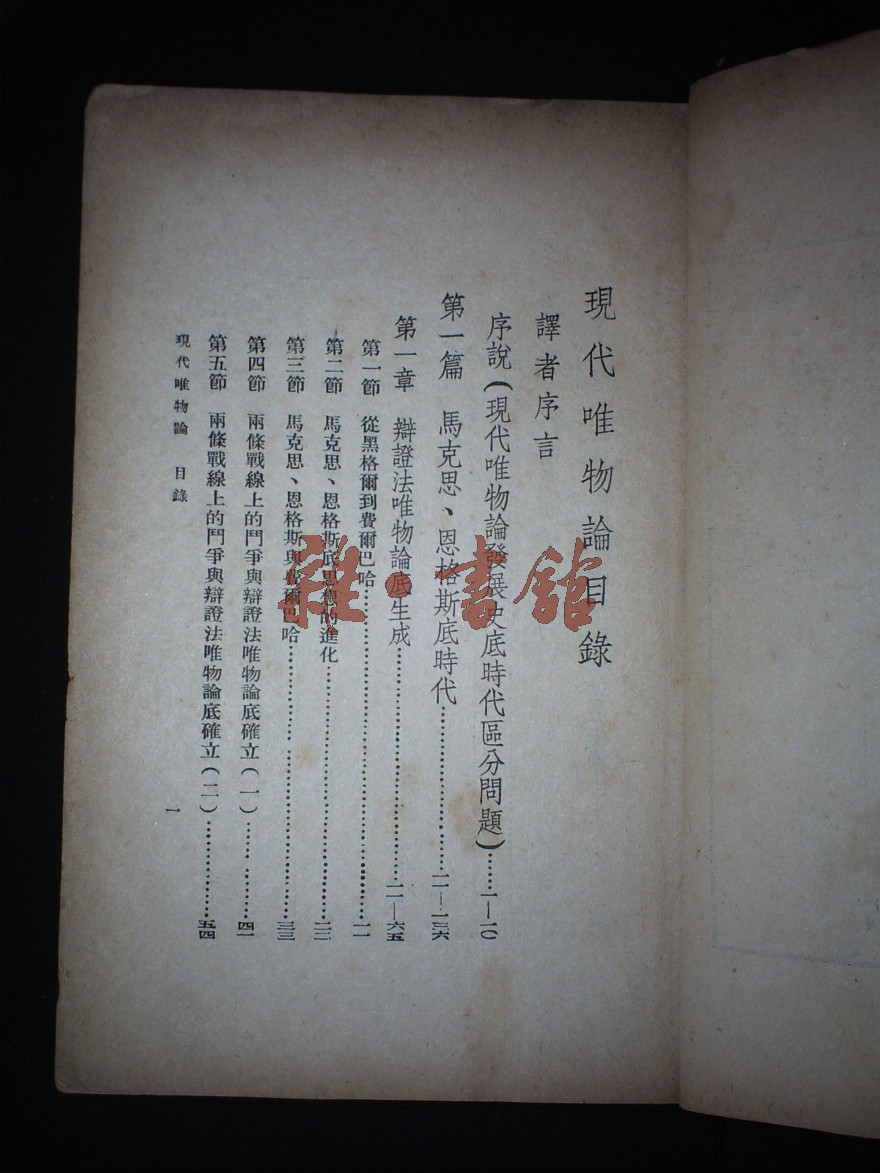 現代唯物論目錄
譯者序言
序說(現代唯物論發展史底時代區分問題)……一—一〇
第一篇 馬克思、恩格斯底時代……一一—一三六
第一章 辯證法唯物論底生成……一一—六五
第一節 從黑格爾到費爾巴哈……一一
第二節 馬克思、恩格斯底思想的進化……二二
第三節 馬克思、恩格斯與費爾巴哈……三三
第四節 兩條戰線上的鬥爭與辯證法唯物論底確立(一)……四一
第五節 兩條戰線上的鬥爭與辯證法唯物論底確立(二)……五四
現代唯物論 目錄
一
雜·書館